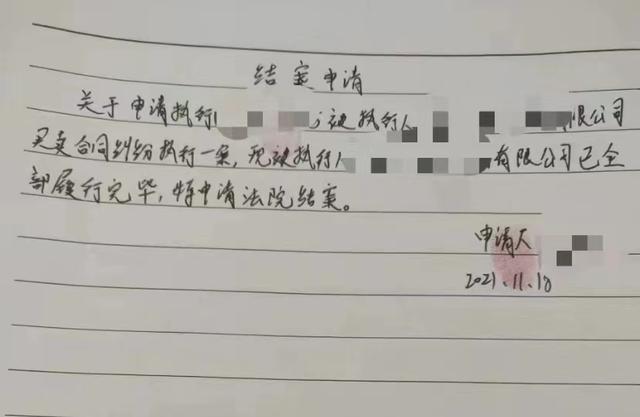 结案申请
关于申请执行 被执行人 限公司
买卖合同纠纷执行一案,现被执行 有限公司已全
部履行完毕,特申请法院结案。
申请人
2021.11.18